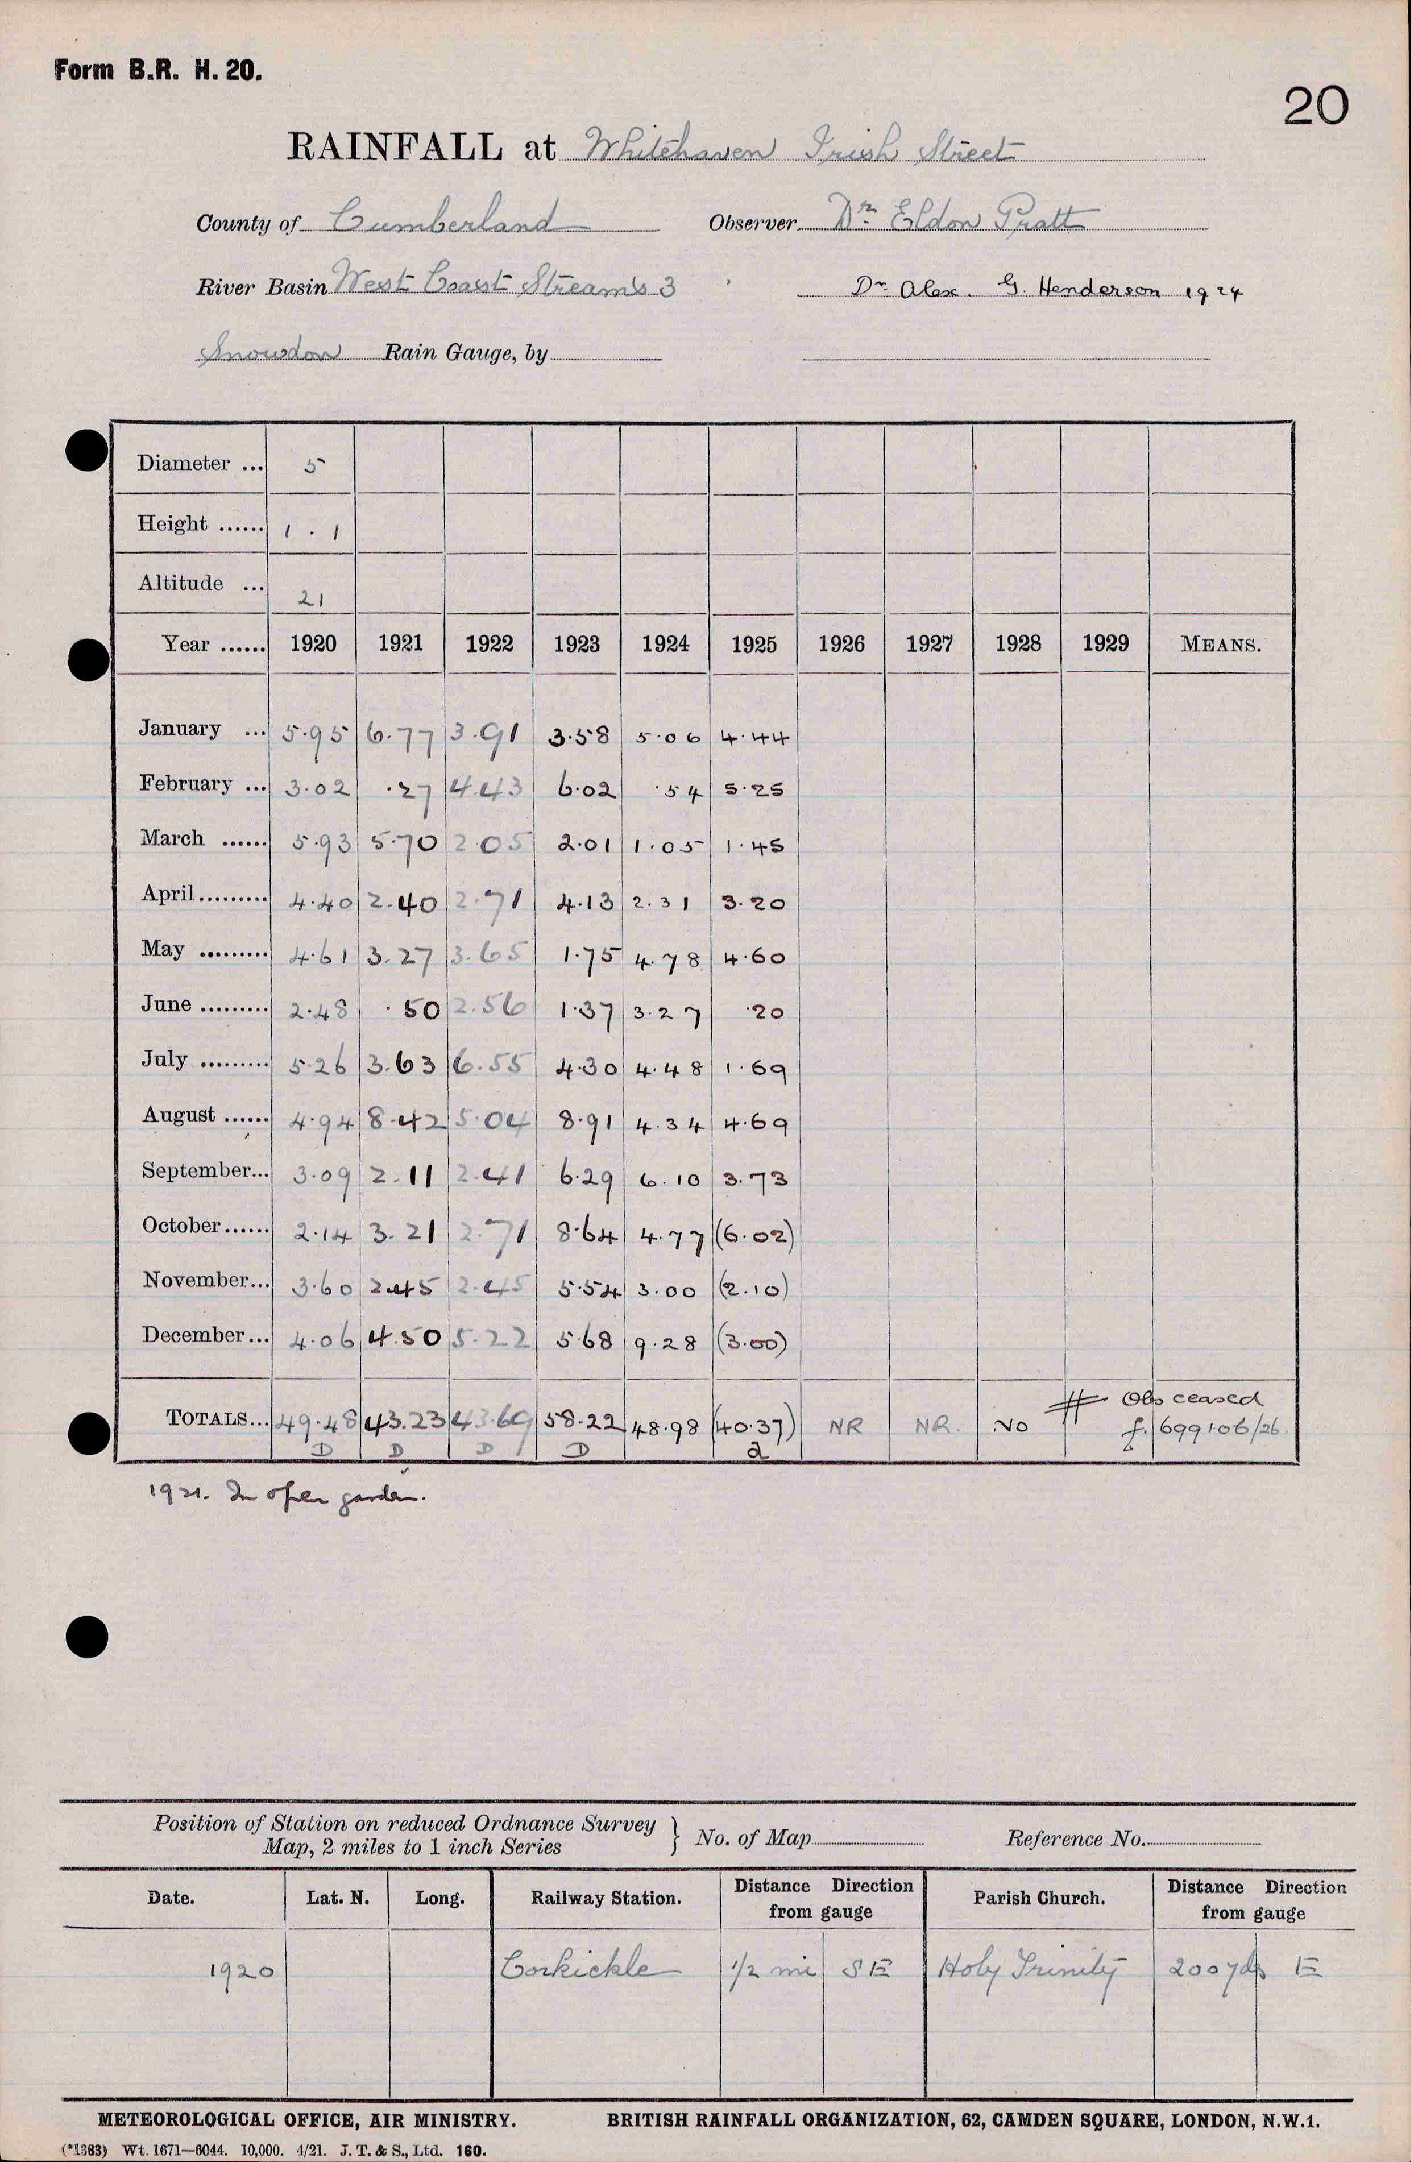 Form B.R. H. 20.
20
RAINFALL at Whitehaven Irish Street
County of Cumberland Observer Dr. Eldon Pratt
River Basin West Coast Streams 3 Dr. Alex. G. Henderson 1924
Snowdon Rain Gauge, by
Diameter ... 5
Height ...... 1 . 1
Altitude ... 21
Year ...... 1920 1921 1922 1923 1924 1925 1926 1927 1928 1929 MEANS.
January ... 5.95 6.77 3.91 3.58 5.06 4.44
February ... 3.02 .27 4.43 6.02 .54 5.25
March ...... 5.93 5.70 2.05 2.01 1.05 1.45
April......... 4.40 2.40 2.71 4.13 2.31 3.20
May ......... 4.61 3.27 3.65 1.75 4.78 4.60
June ......... 2.48 .50 2.56 1.37 3.27 .20
July ......... 5.26 3.63 6.55 4.30 4.48 1.69
August ...... 4.94 8.42 5.04 8.91 4.34 4.69
September... 3.09 2.11 2.41 6.29 6.10 3.73
October...... 2.14 3.21 2.71 8.64 4.77 (6.02)
November... 3.60 2.45 2.45 5.54 3.00 (2.10)
December... 4.06 4.50 5.22 5.68 9.28 (3.00)
# Obs ceased
TOTALS... 49.48 43.23 43.69 58.22 48.98 (40.37) NR NR. No f. 699106/26
D D D D a
1921. In open garden.
Position of Station on reduced Ordnance Survey Map, 2 miles to 1 inch Series } No. of Map Reference No.
Date. Lat. N. Long. Railway Station. Distance Direction from gauge Parish Church. Distance Direction from gauge
1920 Corkickle 1/2 mi SE Holy Trinity 200 yds E
METEOROLOGICAL OFFICE, AIR MINISTRY. BRITISH RAINFALL ORGANIZATION, 62, CAMDEN SQUARE, LONDON, N.W.1.
(*1383) Wt. 1671—6044. 10,000. 4/21. J. T. & S., Ltd. 160.